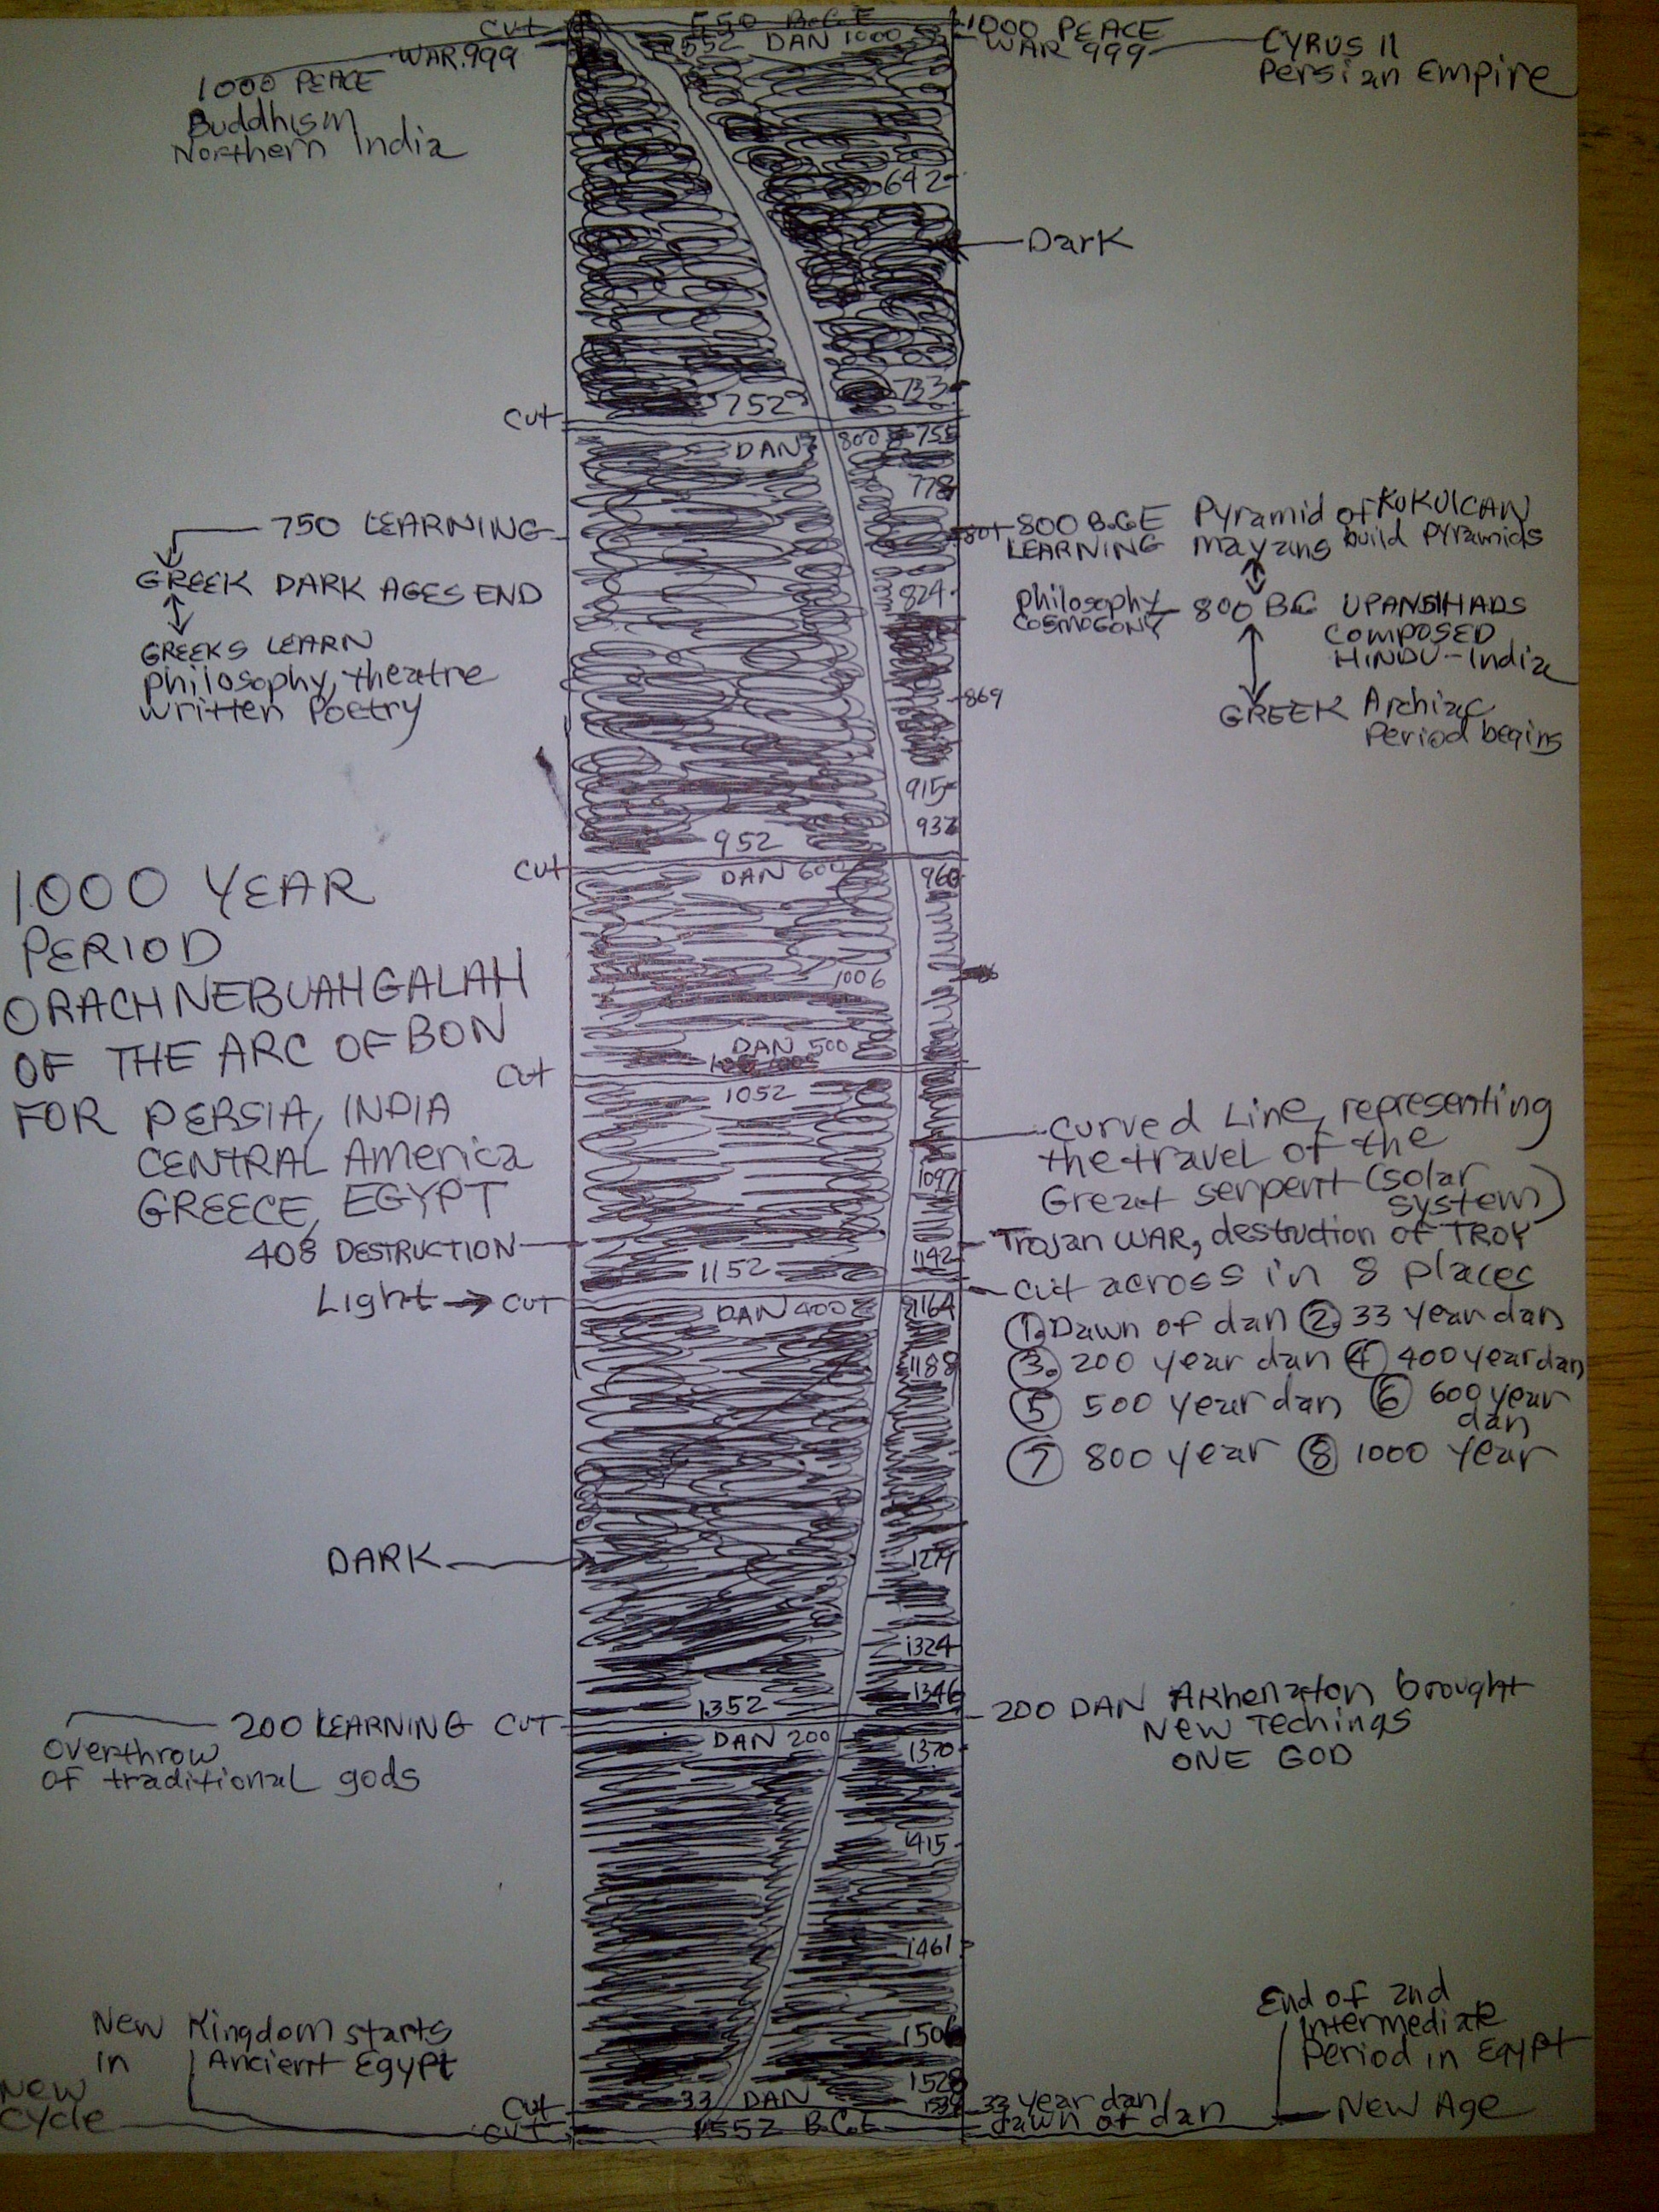 CUT
550 B.C.E
1000 PEACE
WAR 999
552 DAN 1000
WAR 999
CYRUS II
Persian Empire
1000 PEACE
Buddhism
Northern India
642
Dark
733
752
CUT
DAN 800
755
778
750 LEARNING
GREEK DARK AGES END
GREEKS LEARN
philosophy, theatre
written Poetry
801
800 B.C.E Pyramid of KUKULCAN
LEARNING mayans build pyramids
824
philosophy
COSMOGONY
800 BC UPANSIHADS
COMPOSED
HINDU-India
869
GREEK Archiac
Period begins
915
937
952
CUT
DAN 600
960
1000 YEAR
PERIOD
ORACHNEBUAHGALAH
OF THE ARC OF BON
FOR PERSIA, INDIA
CENTRAL America
GREECE, EGYPT
1006
DAN 500
CUT
1052
curved Line, representing
the travel of the
Great serpent (solar
system)
1097
408 DESTRUCTION
Trojan WAR, destruction of TROY
1142
1152
Light → CUT
cut across in 8 places
DAN 400
1164
① Dawn of dan ② 33 year dan
③ 200 year dan ④ 400 year dan
⑤ 500 year dan ⑥ 600 year
dan
⑦ 800 year ⑧ 1000 year
1188
DARK
1279
1324
1346
1352
200 LEARNING CUT
Overthrow
of traditional gods
DAN 200
1370
200 DAN Akhenaton brought
New Techings
ONE GOD
1415
1461
1506
New Kingdom starts
in Ancient Egypt
End of 2nd
Intermediate
Period in Egypt
1528
New
Cycle
CUT
33 DAN
33 year dan
CUT
1552 B.C.E
dawn of dan
New Age